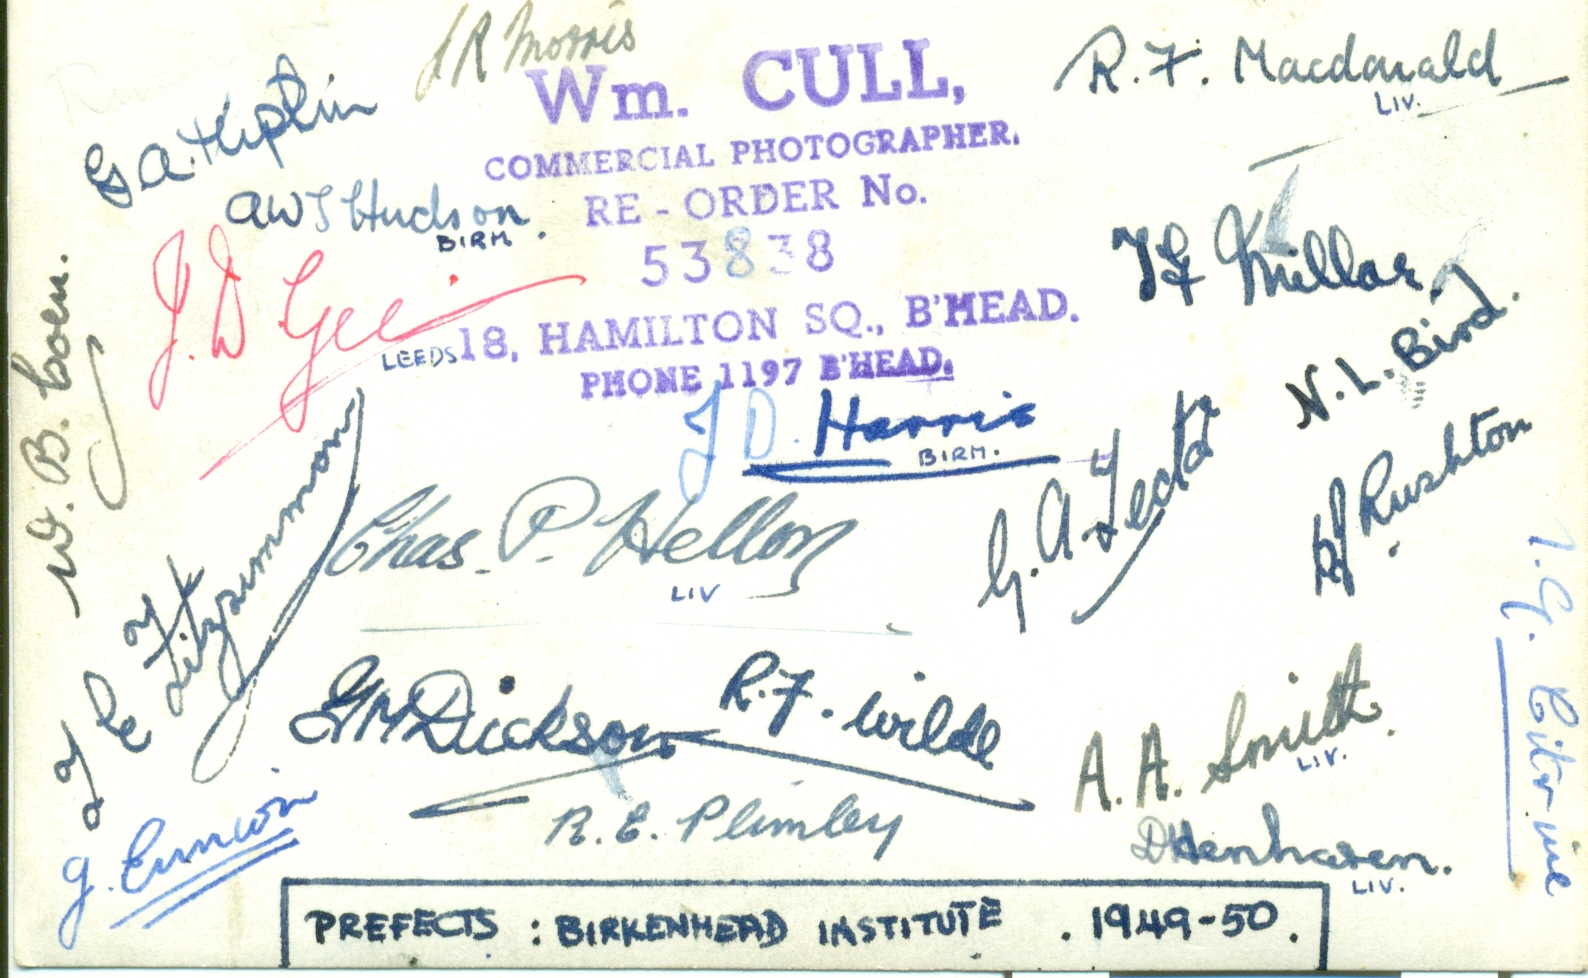 J R Morris
R. F. Macdonald
LIV.
G A. Hipkin
Wm. CULL,
COMMERCIAL PHOTOGRAPHER.
RE-ORDER No.
53838
18, HAMILTON SQ., B'HEAD.
PHONE 1197 B'HEAD.
A W J Hudson.
BIRM.
J. D Gee
LEEDS
W. B. Coen.
Millar.
N. L. Bird.
J D. Harris
BIRM.
G. A.
Rushton
Chas. P. Hellon
LIV
J E Fitzsimmons
G M Dickson
R. F. Wilde
A. A. Smith.
LIV.
I. G. Citrine
R. E. Plimley
D Henharen.
LIV.
G.
PREFECTS : BIRKENHEAD INSTITUTE . 1949-50.